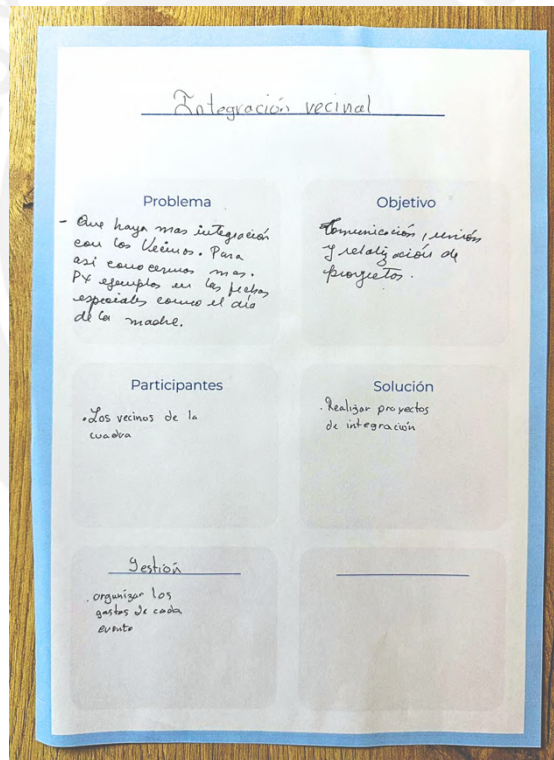 Integración vecinal
Problema
- Que haya mas integración
con los Vecinos. Para
asi conocernos mas.
Px ejemplos en las fechas
especiales como el dia
de la madre.
Objetivo
Comunicación, unión
y relatización de
proyectos.
Participantes
• Los vecinos de la
cuadra
Solución
. Realizar proyectos
de integración
Gestión
. organizar los
gastos de cada
evento